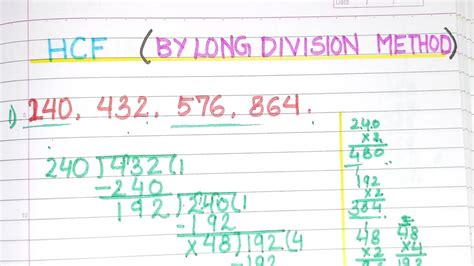 HCF (BY LONG DIVISION METHOD)
1) 240, 432, 576, 864.
240 ) 432 ( 1
-240
192 ) 240 ( 1
-192
×48 ) 192 ( 4
192
240
×2
480
1
192
×2
384
1
48
×2
48
×4
192